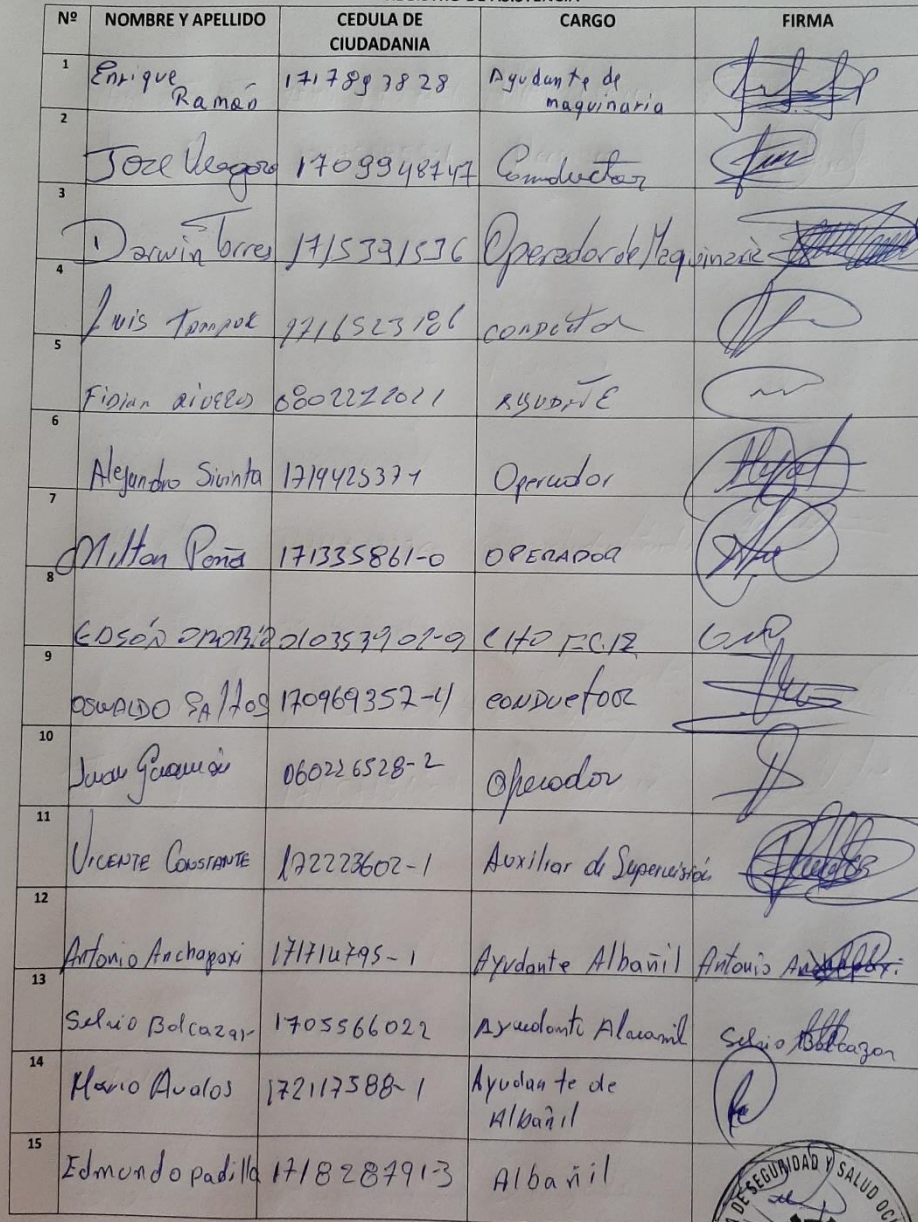 Nº NOMBRE Y APELLIDO CEDULA DE CIUDADANIA CARGO FIRMA
1 Enrique Ramón 1717893828 Ayudante de maquinaria
2 Jose 1709948747 Conductor
3 Darwin Torres 1715391536 Operador de Maquinaria
4 Luis 1716523186 conductor
5 Fidian 0802272021
6 Alejandro Sivinta 171942537-1 Operador
7 Milton Peña 171335861-0 OPERADOR
8 EDSÓN 010353902-9
9 OSWALDO SAltos 170969357-4 CONDUCTOR
10 Juan 060226528-2 Operador
11 VICENTE CONSTANTE 172223602-1 Auxiliar de Supervisión
12 Antonio Anchapaxi 171714795-1 Ayudante Albañil Antonio
13 Selvio Balcazar 1705566022 Selvio Balcazar
14 Mario Avalos 172117588-1 Ayudante de Albañil
15 Edmundo padilla 171828791-3 Albañil
DE SEGURIDAD Y SALUD